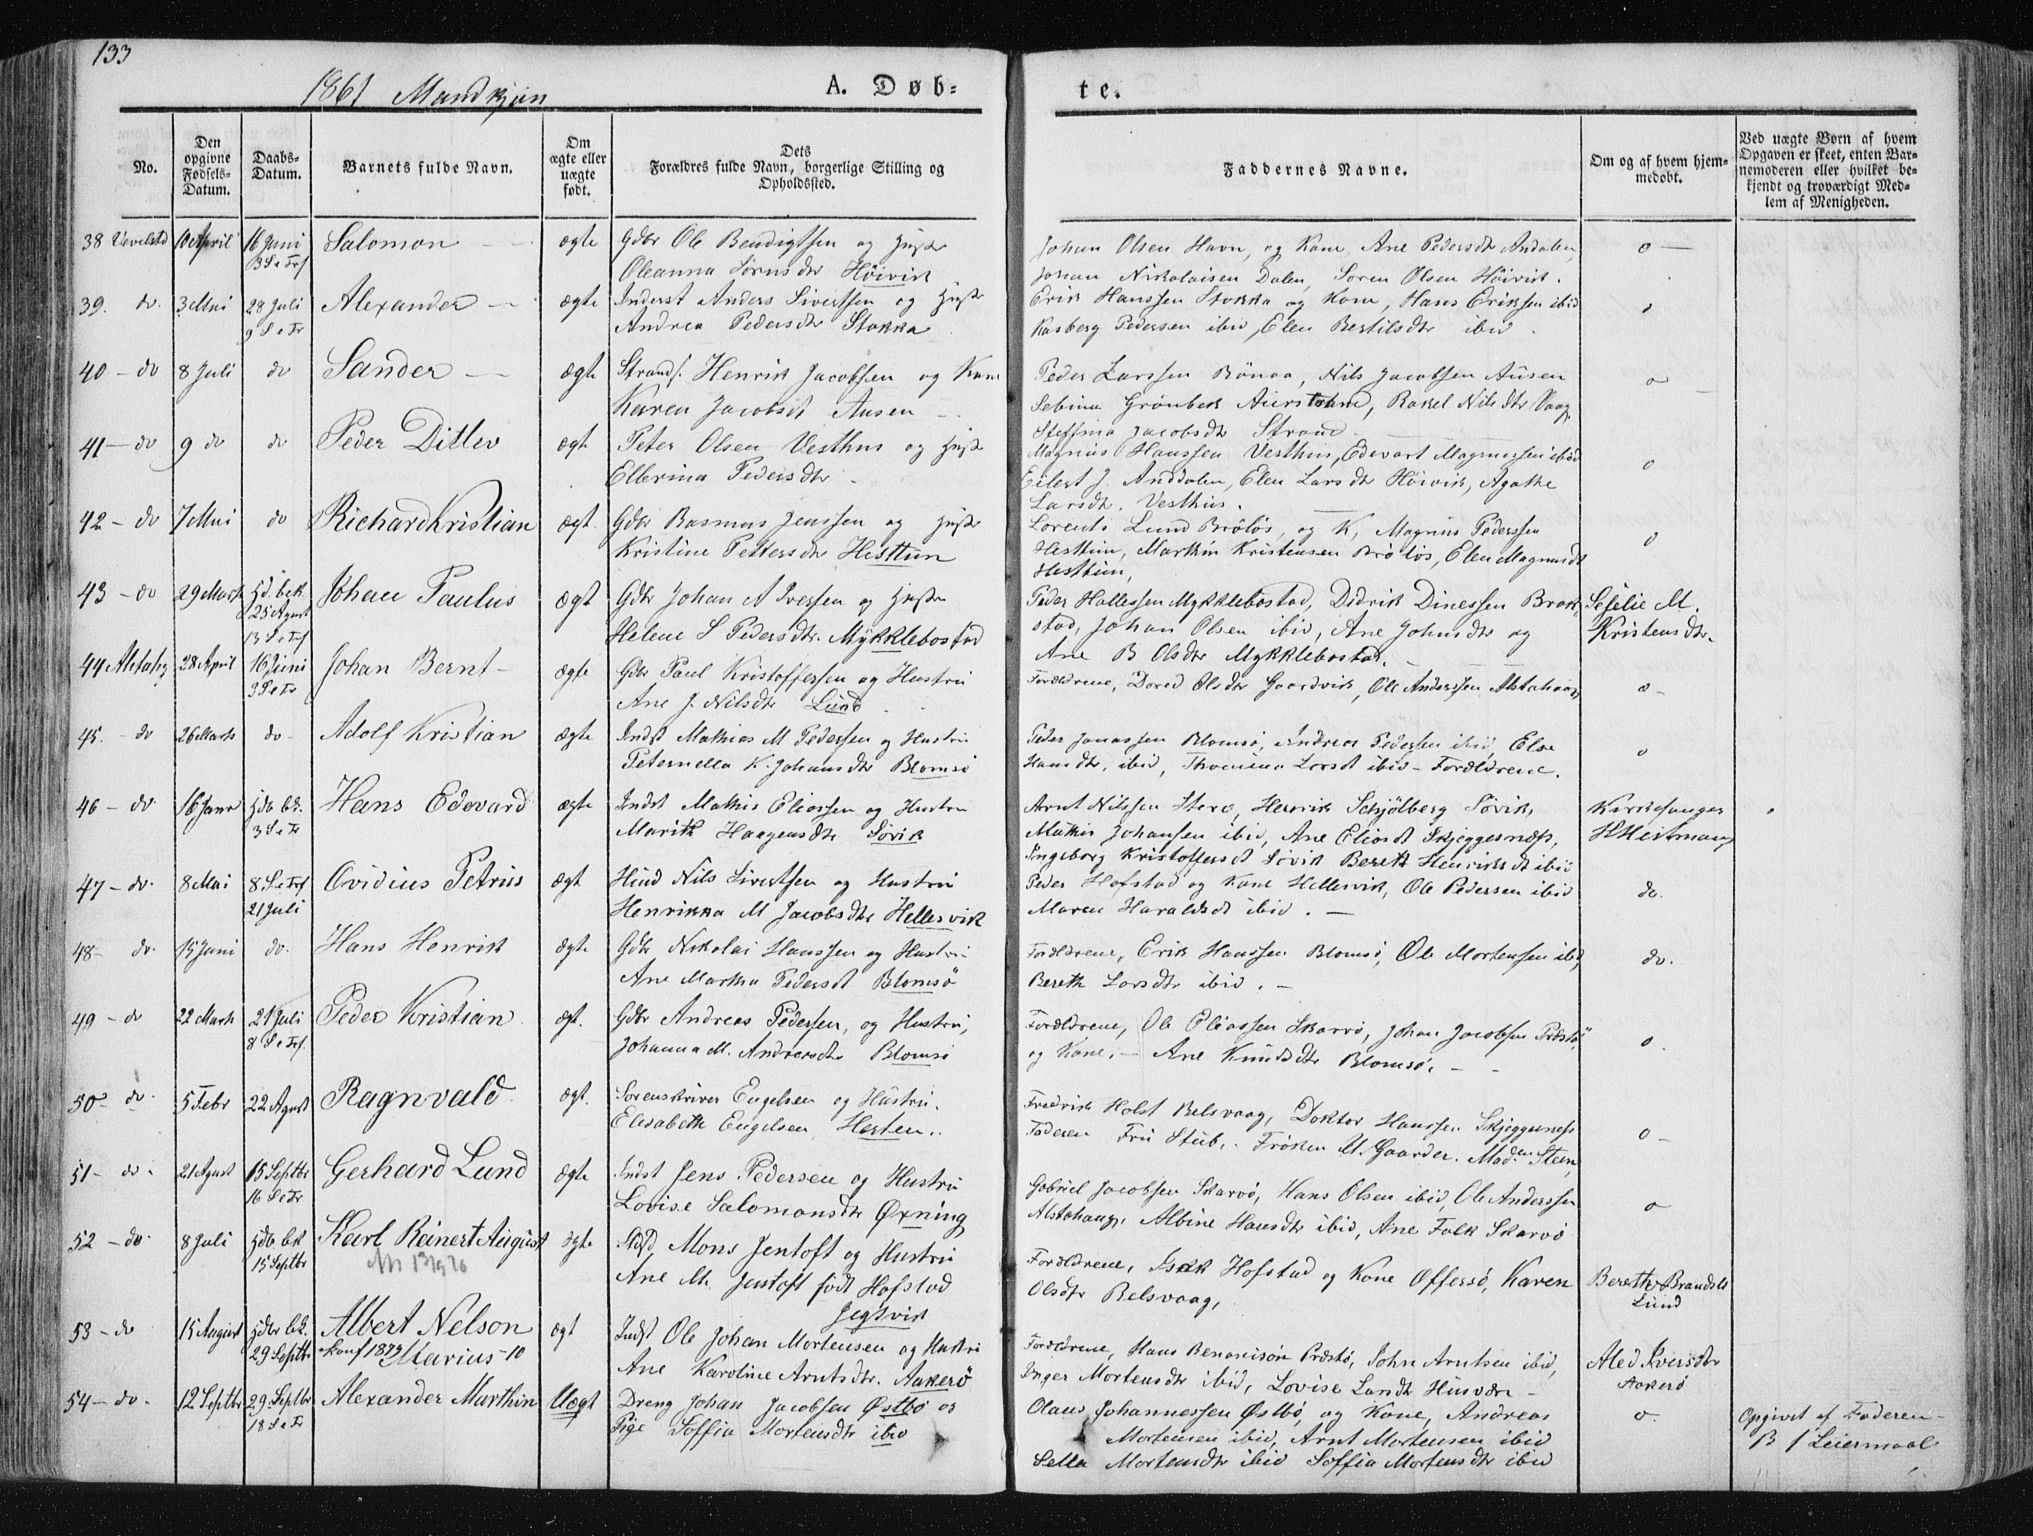 133
1861 Mandkjøn
A. Døb-
te.
No.
Den opgivne Fødsels-Datum.
Daabs-Datum.
Barnets fulde Navn.
Om ægte eller uægte født.
Dets Forældres fulde Navn, borgerlige Stilling og Opholdssted.
Faddernes Navne.
Om og af hvem hjem-medøbt.
Ved uægte Børn af hvem Opgaven er skeet, enten Bar-nemoderen eller hvilket be-kjendt og troværdigt Med-lem af Menigheden.
38 Vevelstd 10 April 16 Juni 3 S e Trf Salomon ægte Gdbr Ole Bendigtsen og Hustr
Oleanna Sørnsdtr Høivik
Johan Olsen Havn, og Kone Ane Pedersdtr Andalen,
Johan Nikolaisen Dalen, Soren Olsen Höivik. o
39. do. 3 Mai 28 Juli 9 S e Tr Alexander ægte Inderst Anders Sivertsen og Hustr
Andrea Pedersdtr Stokka
Erik Hanssen Stokka og Kone, Hans Eriksen ibid
Kasberg Pedersen ibid, Elen Bertilsdtr ibid.
40 - do 8 Juli do Sander ægte Strands. Henrik Jacobsen og Kone
Karen Jacobsdt Ausen
Peder Larssen Rönaa, Nils Jacobsen Ausen
Sebina Grönbek Aierstrand, Rakel Nilsdtr Vaag,
Steffina Jacobsdtr Strand o
41 - do 9 do do Peder Ditlev ægt Peter Olsen Vesthus og Hustr
Ellerina Pedersdtr.
Magnus Hanssen Vesthus, Edevart Magnussen ibid
Eilert J. Anddalen, Elen Larsdtr Höivik, Agathe
Larsdtr. Vesthus. o
42 - do 7 Mai do Richard Kristian ægt Gdbr Rasmus Jenssen og Hustr
Kristine Pettersdtr Hesttun
Lorents Lund Bröløs, og K, Magnus Pederssen
Hesttun, Marthin Kristensen Brøløs, Elen Magnusdt
Hesttun, o
43 - do 29 Marts hjd. bek. 25 Agust 13 S e Trf Johan Paulus ægt Gdbr Johan A Iverssen og Hustr
Helene S Pedersdtr. Mykklebostad
Peder Hallessen Mykklebostad, Didrik Dinessen Brok-
stad, Johan Olsen ibid, Ane Johnsdtr og
Ane B Olsdtr Mykklebostad. Sesilie M.
Kristensdtr.
44 Alstahg 28 April 16 Juni 3 S e Tr Johan Bernt ægte Gdbr Paul Kristoffersen og Hustru
Ane J. Nilsdtr Lund
Forældrene, Dored Olsdtr Gaardvik, Ole Anderssen Alstahaug
45. - do 26 Marts do Adolf Kristian ægte Indst Mathias M Pedersen og Hustru
Peternella K. Johansdtr Blomsö
Peder Jonassen Blomsö, Andreas Pedersen ibid, Else
Hansdtr, ibid, Thomina Larsdt ibid - Forældrene. o
46 - do 16 Janr hjdb bk. 3 S e Tr Hans Edevard ægte Indst Mathis Eliassen og Hustru
Marith Haagensdtr Søvik
Arnt Nilssen Stero, Henrik Schjölberg Søvik,
Mathis Johansen ibid, Ane Eliasdt Skjeggesnæss,
Ingeborg Kristoffersdt Søvik Bereth Henriksdt ibid Kirkesanger
H Heitmann
47 - do. 8 Mai 8 S e Trf 21 Juli Ovidius Petrus ægt Husmd Nils Sivertsen og Hustru
Henrikka M Jacobsdtr Hellesvik
Peder Hofstad og Kone Hellesvik, Ole Pedersen ibid
Maren Haraldsdt ibid. do.
48 - do. 15 Juni do. Hans Henrik ægte Gdbr Nikolai Hanssen og Hustru
Ane Martha Pedersdt Blomsö
Forældrene, Erik Hanssen Blomsö, Ole Mortensen ibd,
Bereth Larsdtr ibid. do.
49 - do 22 Marts 21 Juli 8 S e Trf. Peder Kristian ægt. Gdbr Andreas Pedersen, og Hustru,
Johanna M. Andreasdtr Blomsö
Forældrene, Ole Eliassen Skarvö, Johan Jacobsen Præstö
og Kone. - Ane Knudsdtr Blomsö. o.
50 - do. 5 Febr 22 Agust Ragnvald ægt. Sorenskriver Engelsen og Hustru.
Elisabeth Engelsen Hesten.
Fredrik Holst Belsvaag, Doktor Hanssen Skjeggesness
Faderen Fru Stub. Frøken M. Gaarder. Madm Steen o
51 - do. 21 Agust 15 Septbr 16 S e Tr Gerhard Lund ægte Indst Jens Pedersen og Hustru
Lovise Salomonsdtr Øxning
Gabriel Jacobsen Skarvö, Hans Olsen ibid, Ole Anderssen
Alstahaug, Albine Hansdtr ibid, Ane Falk Skarvö o
52 - do. 8 Juli hjdb. bk 15 Septbr Karl Reinert August ægte Mons Jentoft og Hustru
Ane M. Jentoft født Hofstad
Jegtvik
Forældrene, Isak Hofstad og Kone Offersö, Karen
Olsdtr Belsvaag, Bereth Brandsdt
Lund
53 - do 15 August hjdbr bk. 29 Septbr Albert Nelson
konf 1879 Marius - 10 ægt Indst Ole Johan Mortensen og Hustru
Ane Karoline Arntsdtr. Aakerö
Forældrene, Hans Benonisön Præstö, John Arntsen ibid,
Inger Mortensdtr ibid, Lovise Larsdtr Husvær Aled Iversdtr
Aakerö
54 - do. 12 Septbr 29 Septbr 18 S e Tr Alexander Marthin Uægt Dreng Johan Jacobsen Østbö og
Pige Soffia Mortensdtr ibid
Olaus Johannessen Østbö, og Kone, Andreas
Mortensen ibid, Arnt Mortensen ibid
Sella Mortensdtr ibid Soffia Mortensdtr ibid o. Opgivet af Faderen
B 1 Leiermaal